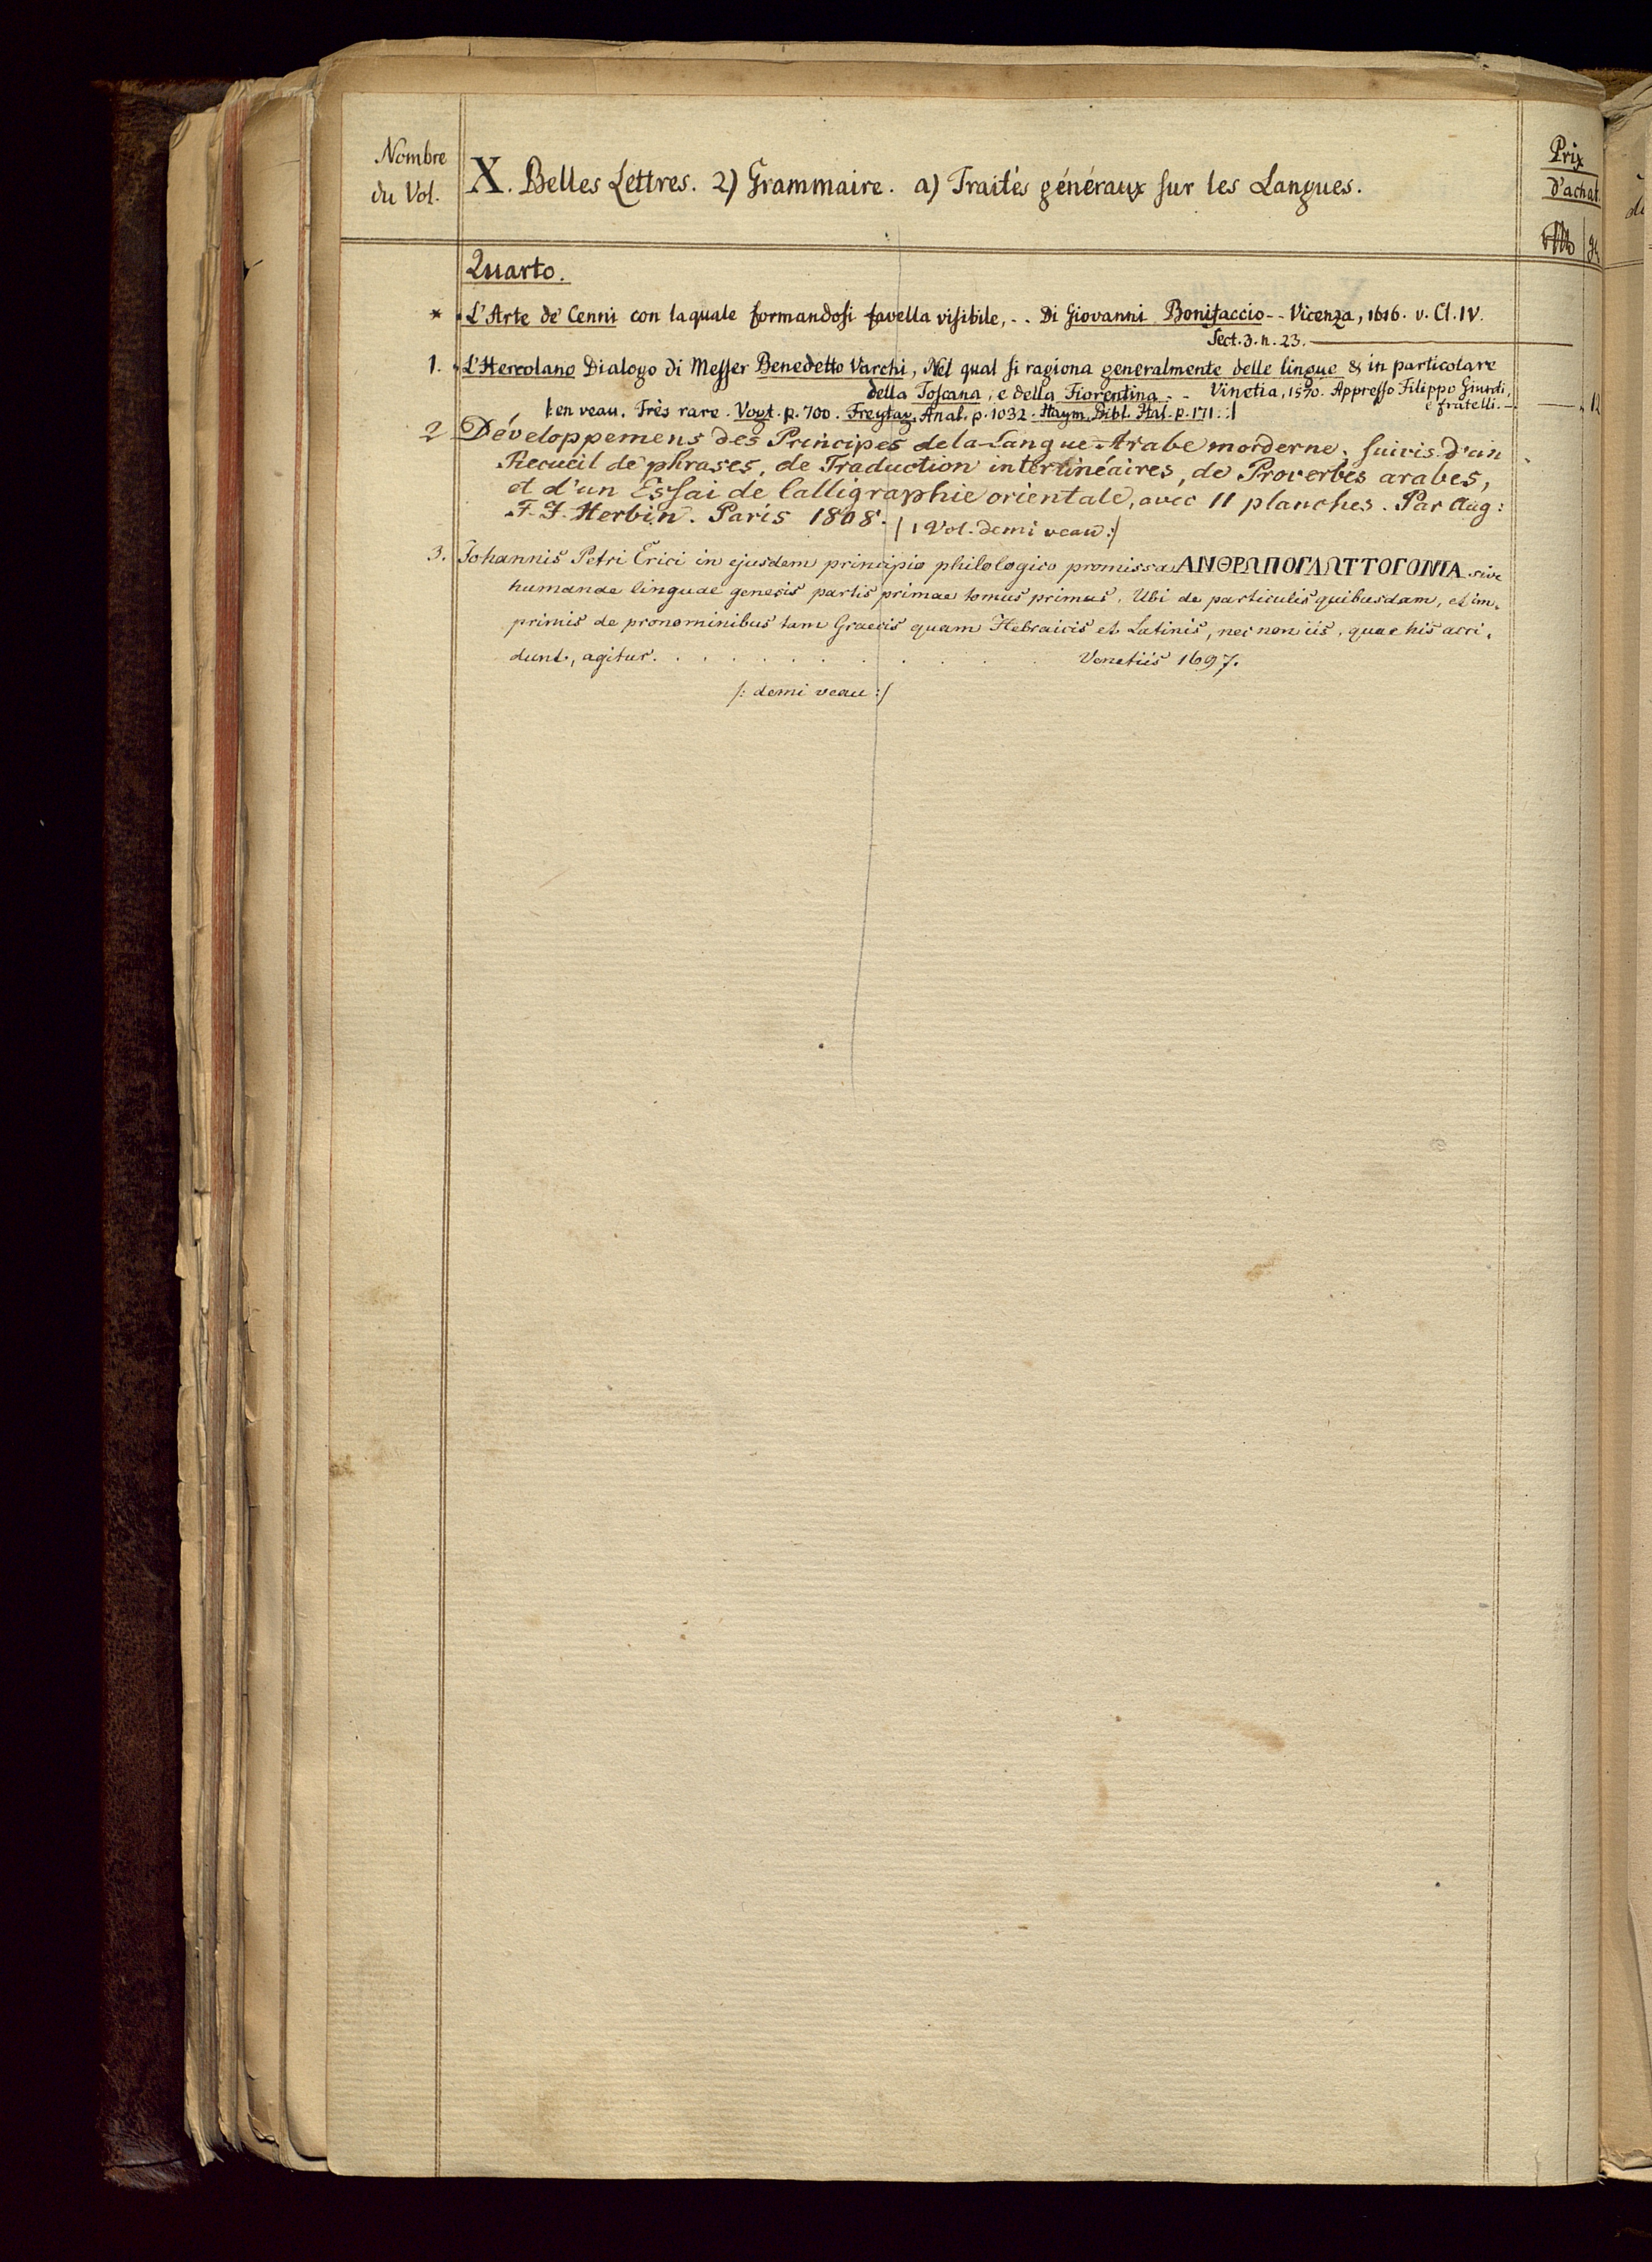 Nombre
du Vol.
X. Belles Lettres. 2) Grammaire. a) Traités généraux sur les Langues.
Prix
d'achat.
Quarto.
* L'Arte de' Cenni con laquale formandosi favella visibile, - - Di Giovanni Bonifaccio - - Vicenza, 1616. v. Cl. IV.
Sect. 3. n. 23.
1. L'Hercolano Dialogo di Messer Benedetto Varchi, Nel qual si ragiona generalmente delle lingue & in particolare
della Toscana, e della Fiorentina - - Vinetia, 1570. Appresso Filippo Giunti,
e fratelli. — 12
/: en veau. Très rare. Vogt. p. 700. Freytag. Anal. p. 1032. Haym. Bibl. Ital. p. 171. :/
2 Développemens des Principes de la Langue Arabe morderne, suivis d'un
Recueil de phrases, de Traduction interlinéaires, de Proverbes arabes,
et d'un Essai de Calligraphie orientale, avec 11 planches. Par Aug:
F. J. Herbin. Paris 1808. /: 1 Vol. demi veau :/
3. Johannis Petri Erici in ejusdem principio philologico promissa ΑΝΘΡΩΠΟΓΛΩΤΤΟΓΟΝΙΑ sive
humanae linguae genesis partis primae tomus primus. Ubi de particulis quibusdam, et im-
primis de pronominibus tam Graecis quam Hebraicis et Latinis, nec non iis, quae his acci-
dunt, agitur. . . . . . . . . . . . . . Venetiis 1697.
/: demi veau :/